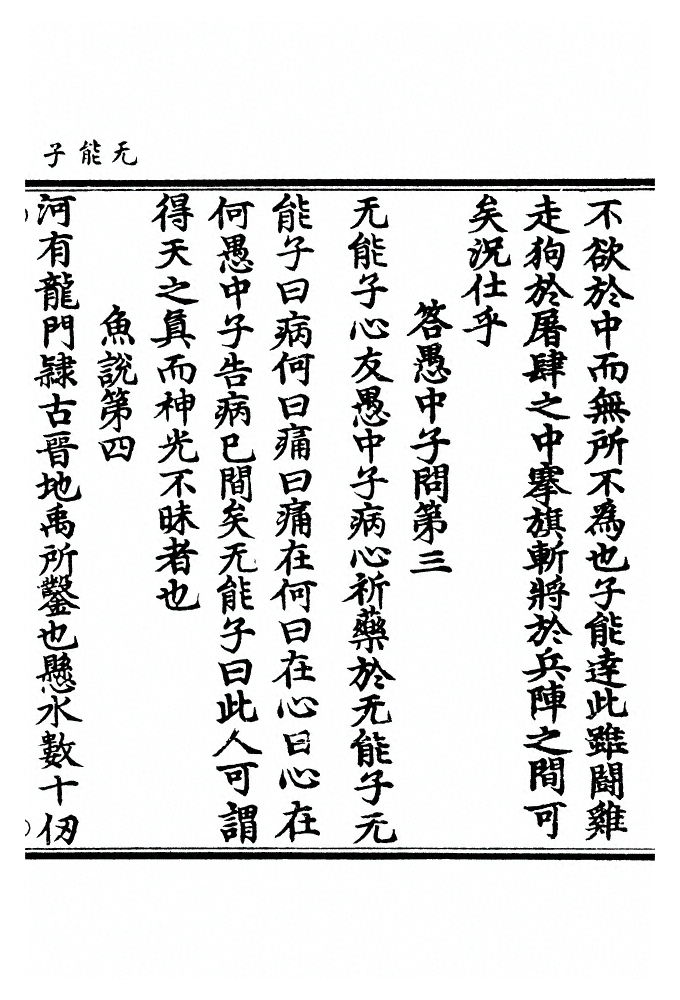 无能子
不欲於中而無所不為也子能達此雖鬪雞
走狗於屠肆之中搴旗斬將於兵陣之間可
矣況仕乎
答愚中子問第三
无能子心友愚中子病心祈藥於无能子无
能子曰病何曰痛曰痛在何曰在心曰心在
何愚中子告病已間矣无能子曰此人可謂
得天之真而神光不昧者也
魚說第四
河有龍門隸古晉地禹所鑿也懸水數十仞